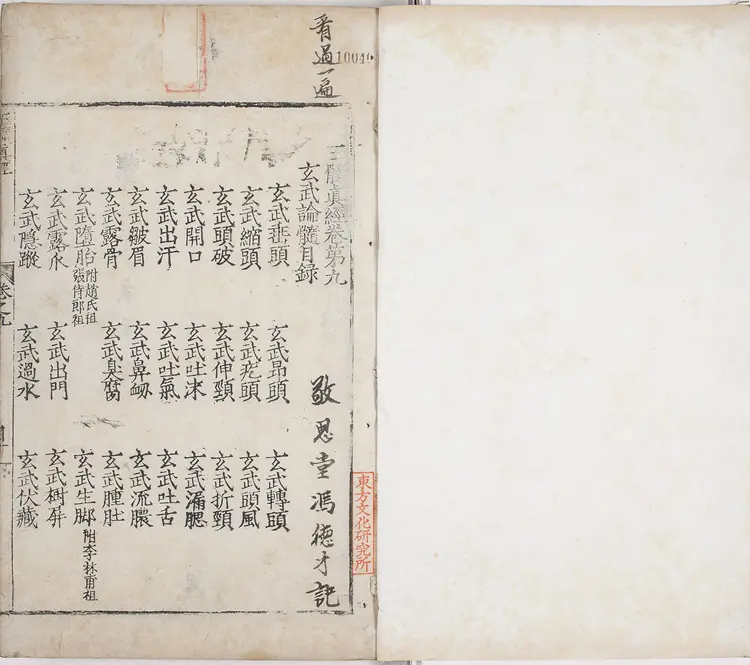 看過一遍
10046
玉髓真經卷第九
玄武論髓目錄
敬恩堂馮德才記
東方文化研究所
玄武垂頭 玄武昂頭 玄武轉頭
玄武縮頭 玄武疙頭 玄武頭風
玄武頭破 玄武伸頸 玄武折頸
玄武開口 玄武吐沫 玄武漏腮
玄武出汗 玄武吐氣 玄武吐舌
玄武皺眉 玄武鼻衂 玄武流膿
玄武露骨 玄武臭腐 玄武腫肚
玄武墮胎 附趙氏祖 張侍郎祖 玄武生脚 附李林甫祖
玄武露水 玄武出門 玄武樹屏
玄武隱蹤 玄武過水 玄武伏藏
卷之九